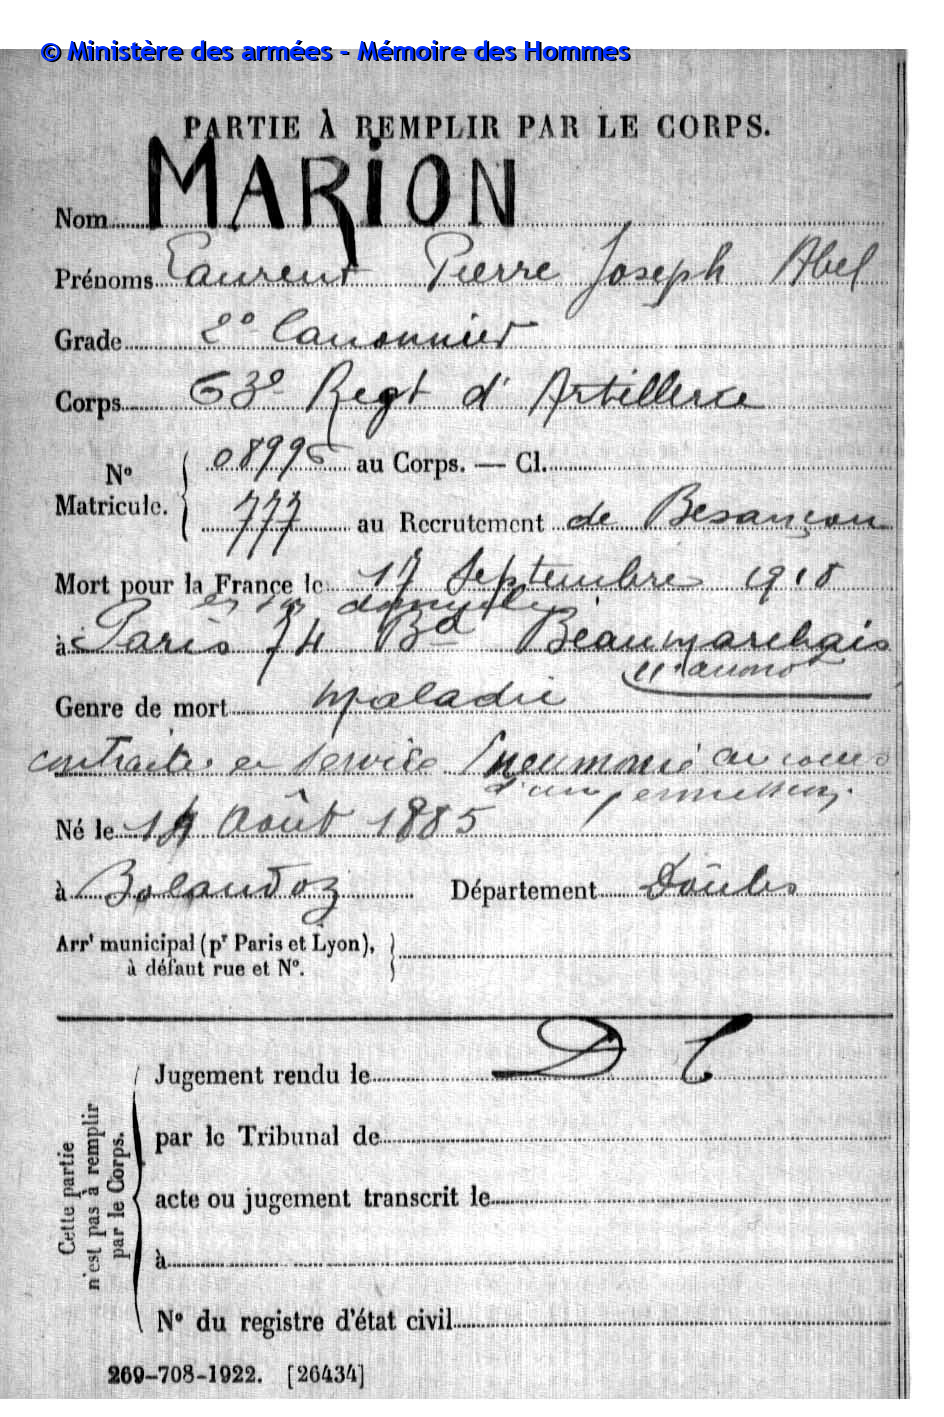 © Ministère des armées - Mémoire des Hommes
PARTIE À REMPLIR PAR LE CORPS.
Nom MARION
Prénoms Laurent Pierre Joseph Abel
Grade 2e Canonnier
Corps 63e Regt d'Artillerie
No Matricule. { 08996 au Corps. — Cl.
777 au Recrutement de Besançon
Mort pour la France le 17 Septembre 1918
en son domicile
à Paris 74 Bd Beaumarchais
Genre de mort maladie
contractée en service Pneumonie au cours
d'une permission.
Né le 14 Août 1885
à Bolandoz Département Doubs
Arrt municipal (pr Paris et Lyon),
à défaut rue et No.
Cette partie
n'est pas à remplir
par le Corps.
Jugement rendu le D C
par le Tribunal de
acte ou jugement transcrit le
à
No du registre d'état civil
269-708-1922. [26434]